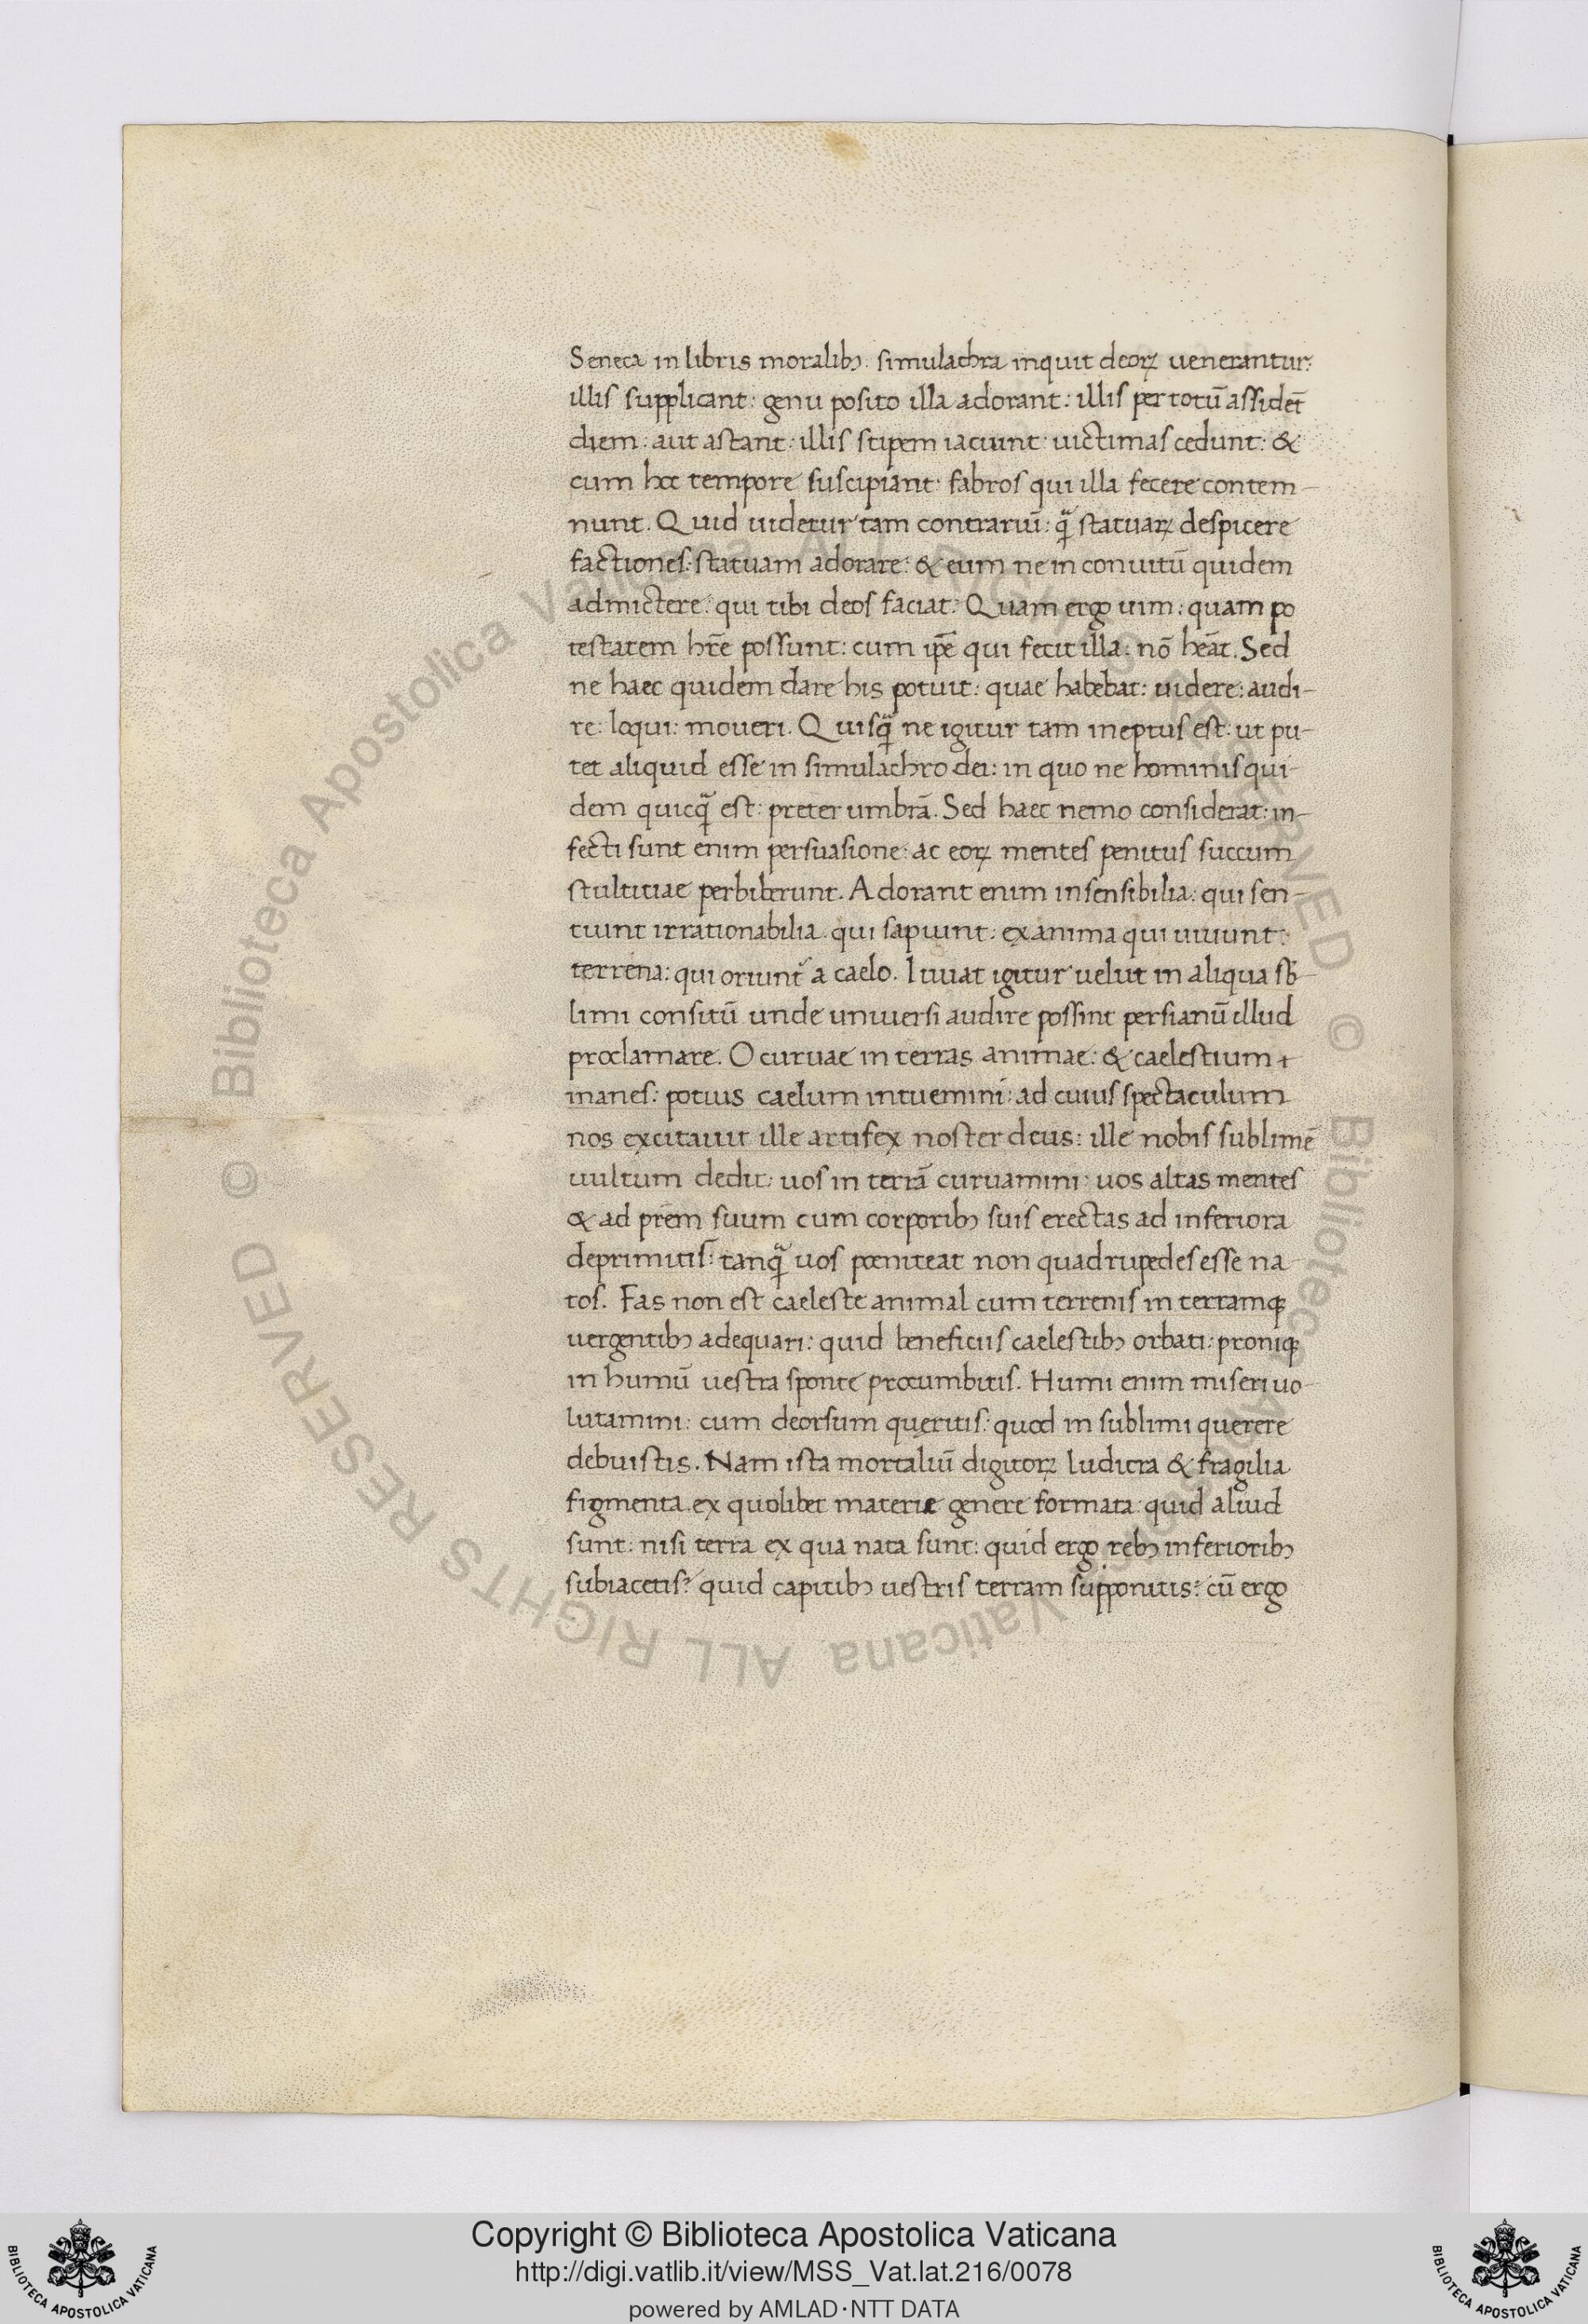 Seneca in libris moralibꝫ. simulachra inquit deoꝝ uenerantur:
illis supplicant: genu posito illa adorant: illis per totū assidēt
diem: aut astant: illis stipem iaciunt: uictimas cedunt: &
cum hoc tempore suscipiant: fabros qui illa fecere contem-
nunt. Quid uidetur tam contrariū: qᷓ statuaꝝ despicere
factiones: statuam adorare: & eum ne in conuitū quidem
admictere: qui tibi deos faciat: Quam ergo uim: quam po
testatem hr̄e possunt: cum ip̄e qui fecit illa: nō heāt. Sed
ne haec quidem dare his potuit: quae habebat: uidere: audi-
re: loqui: moueri. Quisqᷓ ne igitur tam ineptus est: ut pu-
tet aliquid esse in simulachro dei: in quo ne hominis qui-
dem quicqᷓ est: preter umbrā. Sed haec nemo considerat: in-
fecti sunt enim persuasione: ac eoꝝ mentes penitus succum
stultitiae perbiberunt. Adorant enim insensibilia: qui sen-
tiunt irrationabilia. qui sapiunt: exanima qui uiuunt:
terrena: qui oriunt᷑ a caelo. Iuuat igitur uelut in aliqua sb̄-
limi consitū unde uniuersi audire possint persianū illud
proclamare. O curuae in terras animae: & caelestium +
inanes: potius caelum intuemini: ad cuius spectaculum
nos excitauit ille artifex noster deus: ille nobis sublimē
uultum dedit: uos in terrā curuamini: uos altas mentes
& ad prēm suum cum corporibꝫ suis erectas ad inferiora
deprimitis: tanqᷓ uos poeniteat non quadrupedes esse na-
tos. Fas non est caeleste animal cum terrenis in terramqꝫ
uergentibꝫ adequari: quid beneficiis caelestibꝫ orbati: proniqꝫ
in humū uestra sponte procumbitis. Humi enim miseri uo-
lutamini: cum deorsum queritis: quod in sublimi querere
debuistis. Nam ista mortaliū digitoꝝ ludicra & fragilia
figmenta. ex quolibet materie genere formata: quid aliud
sunt: nisi terra ex qua nata sunt: quid ergo rebꝫ inferioribꝫ
subiacetis? quid capitibꝫ uestris terram supponitis? cū ergo
© Biblioteca Apostolica Vaticana ALL RIGHTS RESERVED © Biblioteca Apostolica Vaticana ALL RIGHTS RESERVED
Copyright © Biblioteca Apostolica Vaticana
http://digi.vatlib.it/view/MSS_Vat.lat.216/0078
powered by AMLAD·NTT DATA
BIBLIOTECA APOSTOLICA VATICANA
BIBLIOTECA APOSTOLICA VATICANA